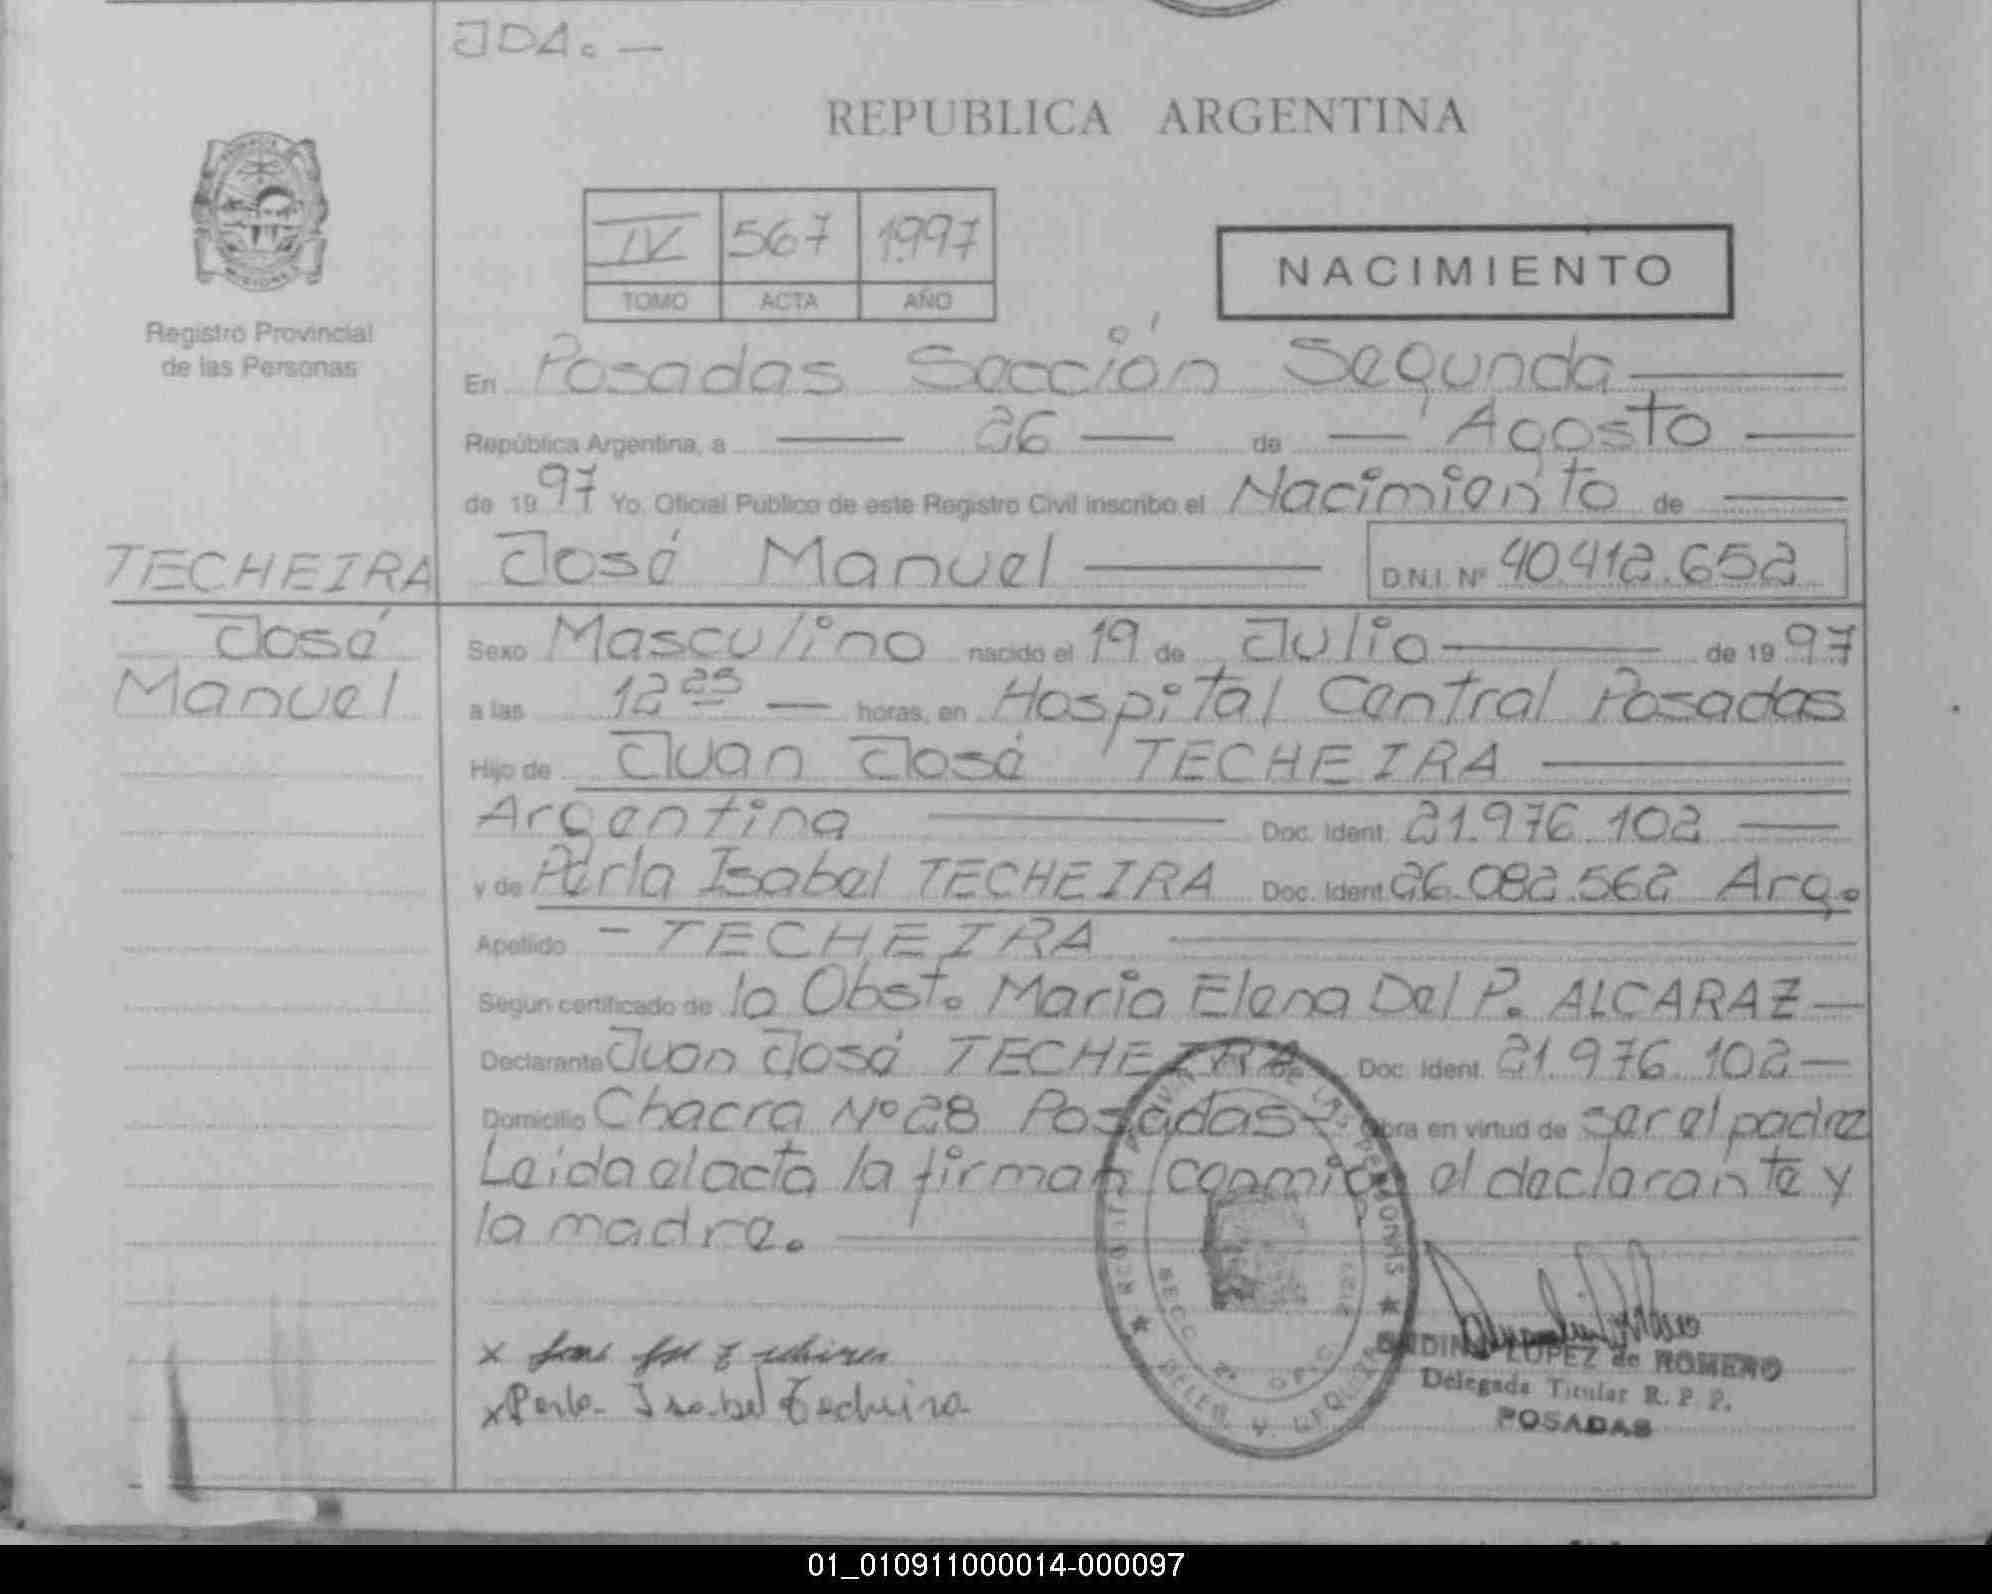 JDA. —
REPUBLICA ARGENTINA
IV 567 1997
TOMO ACTA AÑO
NACIMIENTO
Registro Provincial
de las Personas
En Posadas Sección Segunda
República Argentina, a 26 de Agosto
de 1997 Yo, Oficial Publico de este Registro Civil inscribo el Nacimiento de
TECHEIRA
José Manuel D.N.I. Nº 40.412.652
José
Manuel
Sexo Masculino nacido el 19 de Julio de 1997
a las 12 25 horas, en Hospital Central Posadas
Hijo de Juan José TECHEIRA
Argentina Doc. Ident. 21.976.102
y de Perla Isabel TECHEIRA Doc. Ident. 26.082.562 Arg.
Apellido - TECHEIRA
Segun certificado de la Obst. Maria Elena Del P. ALCARAZ —
Declarante Juan José TECHEIRA Doc. Ident. 21.976.102 —
Domicilio Chacra Nº 28 Posadas - Obra en virtud de ser el padre
Leida el acta la firman conmigo el declarante y
la madre.
x
x Perla Isabel Techeira
LOPEZ de ROMERO
Delegada Titular R. P. P.
POSADAS
01_010911000014-000097